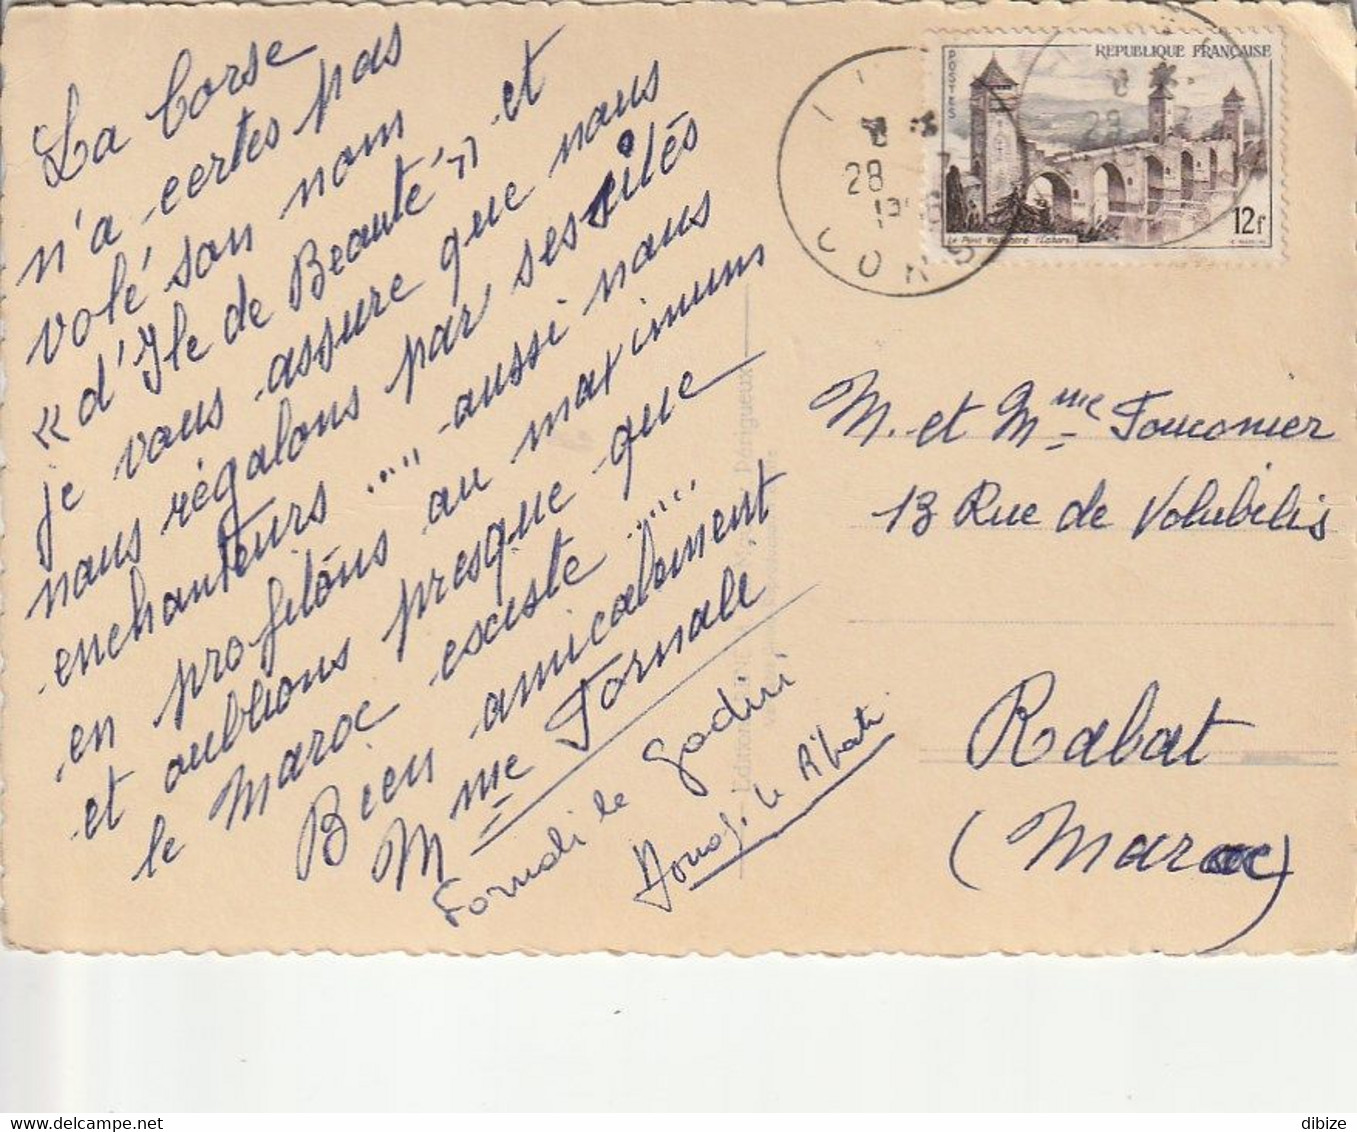 La Corse
n'a certes pas
volé son nom
« d'Ile de Beauté" et
je vous assure que nous
nous régalons par ses sites
enchanteurs .... aussi nous
en profitons au maximum
et oublions presque que
le Maroc existe .....
Bien amicalement
Mme Fornali
REPUBLIQUE FRANÇAISE
POSTES
12f
Le Pont Valentré (Cahors)
28
CORS
M. et Mme Fouconier
13 Rue de Volubilis
Rabat
(Maroc)
Périgueux
dibize